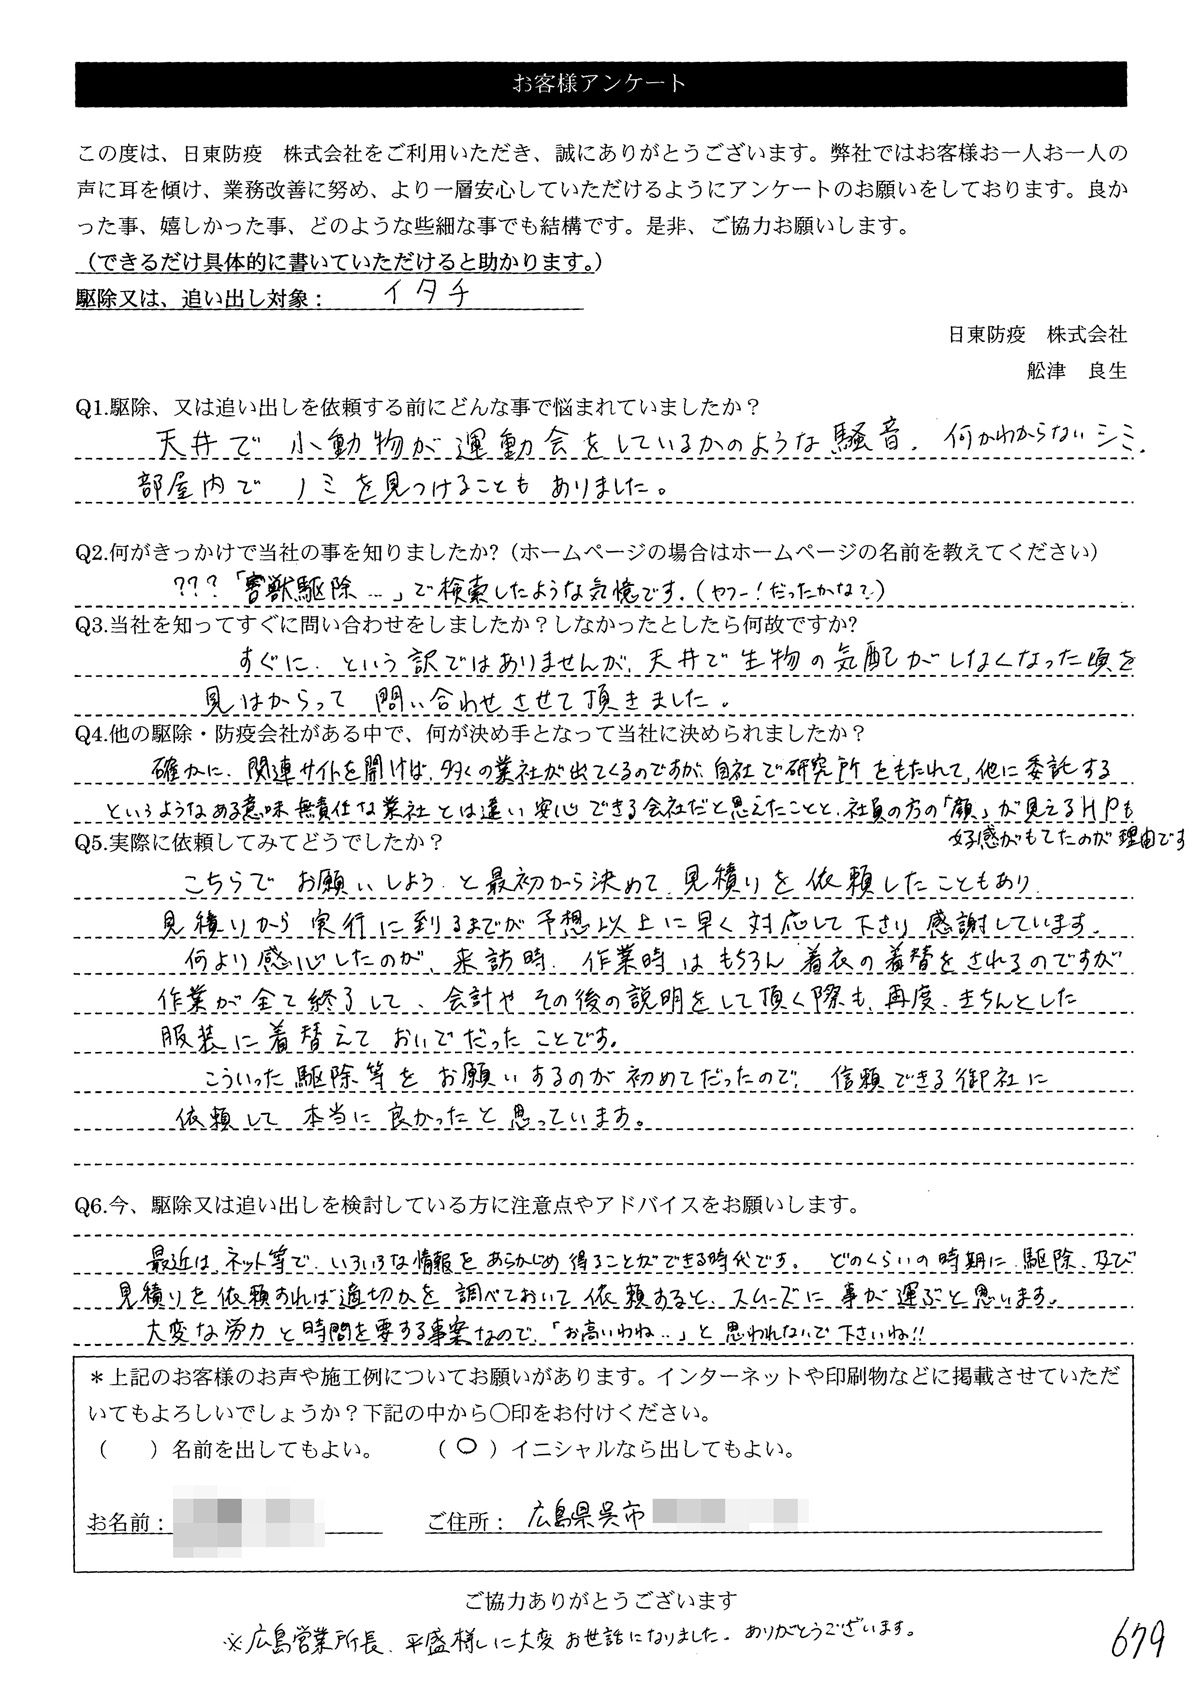 お客様アンケート
この度は、日東防疫　株式会社をご利用いただき、誠にありがとうございます。弊社ではお客様お一人お一人の
声に耳を傾け、業務改善に努め、より一層安心していただけるようにアンケートのお願いをしております。良か
った事、嬉しかった事、どのような些細な事でも結構です。是非、ご協力お願いします。
（できるだけ具体的に書いていただけると助かります。）
駆除又は、追い出し対象：　イタチ
日東防疫　株式会社
舩津　良生
Q1.駆除、又は追い出しを依頼する前にどんな事で悩まれていましたか？
天井で小動物が運動会をしているかのような騒音、何かわからないシミ、
部屋内でノミを見つけることもありました。
Q2.何がきっかけで当社の事を知りましたか?（ホームページの場合はホームページの名前を教えてください）
???「害獣駆除…」で検索したような気憶です。(ヤフー!だったかな?)
Q3.当社を知ってすぐに問い合わせをしましたか？しなかったとしたら何故ですか?
すぐに、という訳ではありませんが、天井で生物の気配がしなくなった頃を
見はからって問い合わせさせて頂きました。
Q4.他の駆除・防疫会社がある中で、何が決め手となって当社に決められましたか？
確かに、関連サイトを開けば、多くの業社が出てくるのですが、自社で研究所をもたれて、他に委託する
というようなある意味無責任な業社とは違い安心できる会社だと思えたことと、社員の方の「顔」が見えるHPも
好感がもてたのが理由です
Q5.実際に依頼してみてどうでしたか？
こちらでお願いしようと最初から決めて、見積りを依頼したこともあり、
見積りから実行に到るまでが予想以上に早く対応して下さり感謝しています。
何より感心したのが、来訪時、作業時はもちろん着衣の着替をされるのですが
作業が全て終了して、会計やその後の説明をして頂く際も、再度、きちんとした
服装に着替えておいでだったことです。
こういった駆除等をお願いするのが初めてだったので、信頼できる御社に
依頼して本当に良かったと思っています。
Q6.今、駆除又は追い出しを検討している方に注意点やアドバイスをお願いします。
最近は、ネット等で、いろいろな情報をあらかじめ得ることができる時代です。どのくらいの時期に、駆除、及び
見積りを依頼すれば適切かを調べておいて依頼すると、スムーズに事が運ぶと思います。
大変な労力と時間を要する事案なので、「お高いわね‥」と思われないで下さいね!!
＊上記のお客様のお声や施工例についてお願いがあります。インターネットや印刷物などに掲載させていただ
いてもよろしいでしょうか？下記の中から〇印をお付けください。
（　　）名前を出してもよい。　　（○）イニシャルなら出してもよい。
お名前：　　ご住所：　広島県呉市
ご協力ありがとうございます
※広島営業所長、平盛様に大変お世話になりました。ありがとうございます。
679